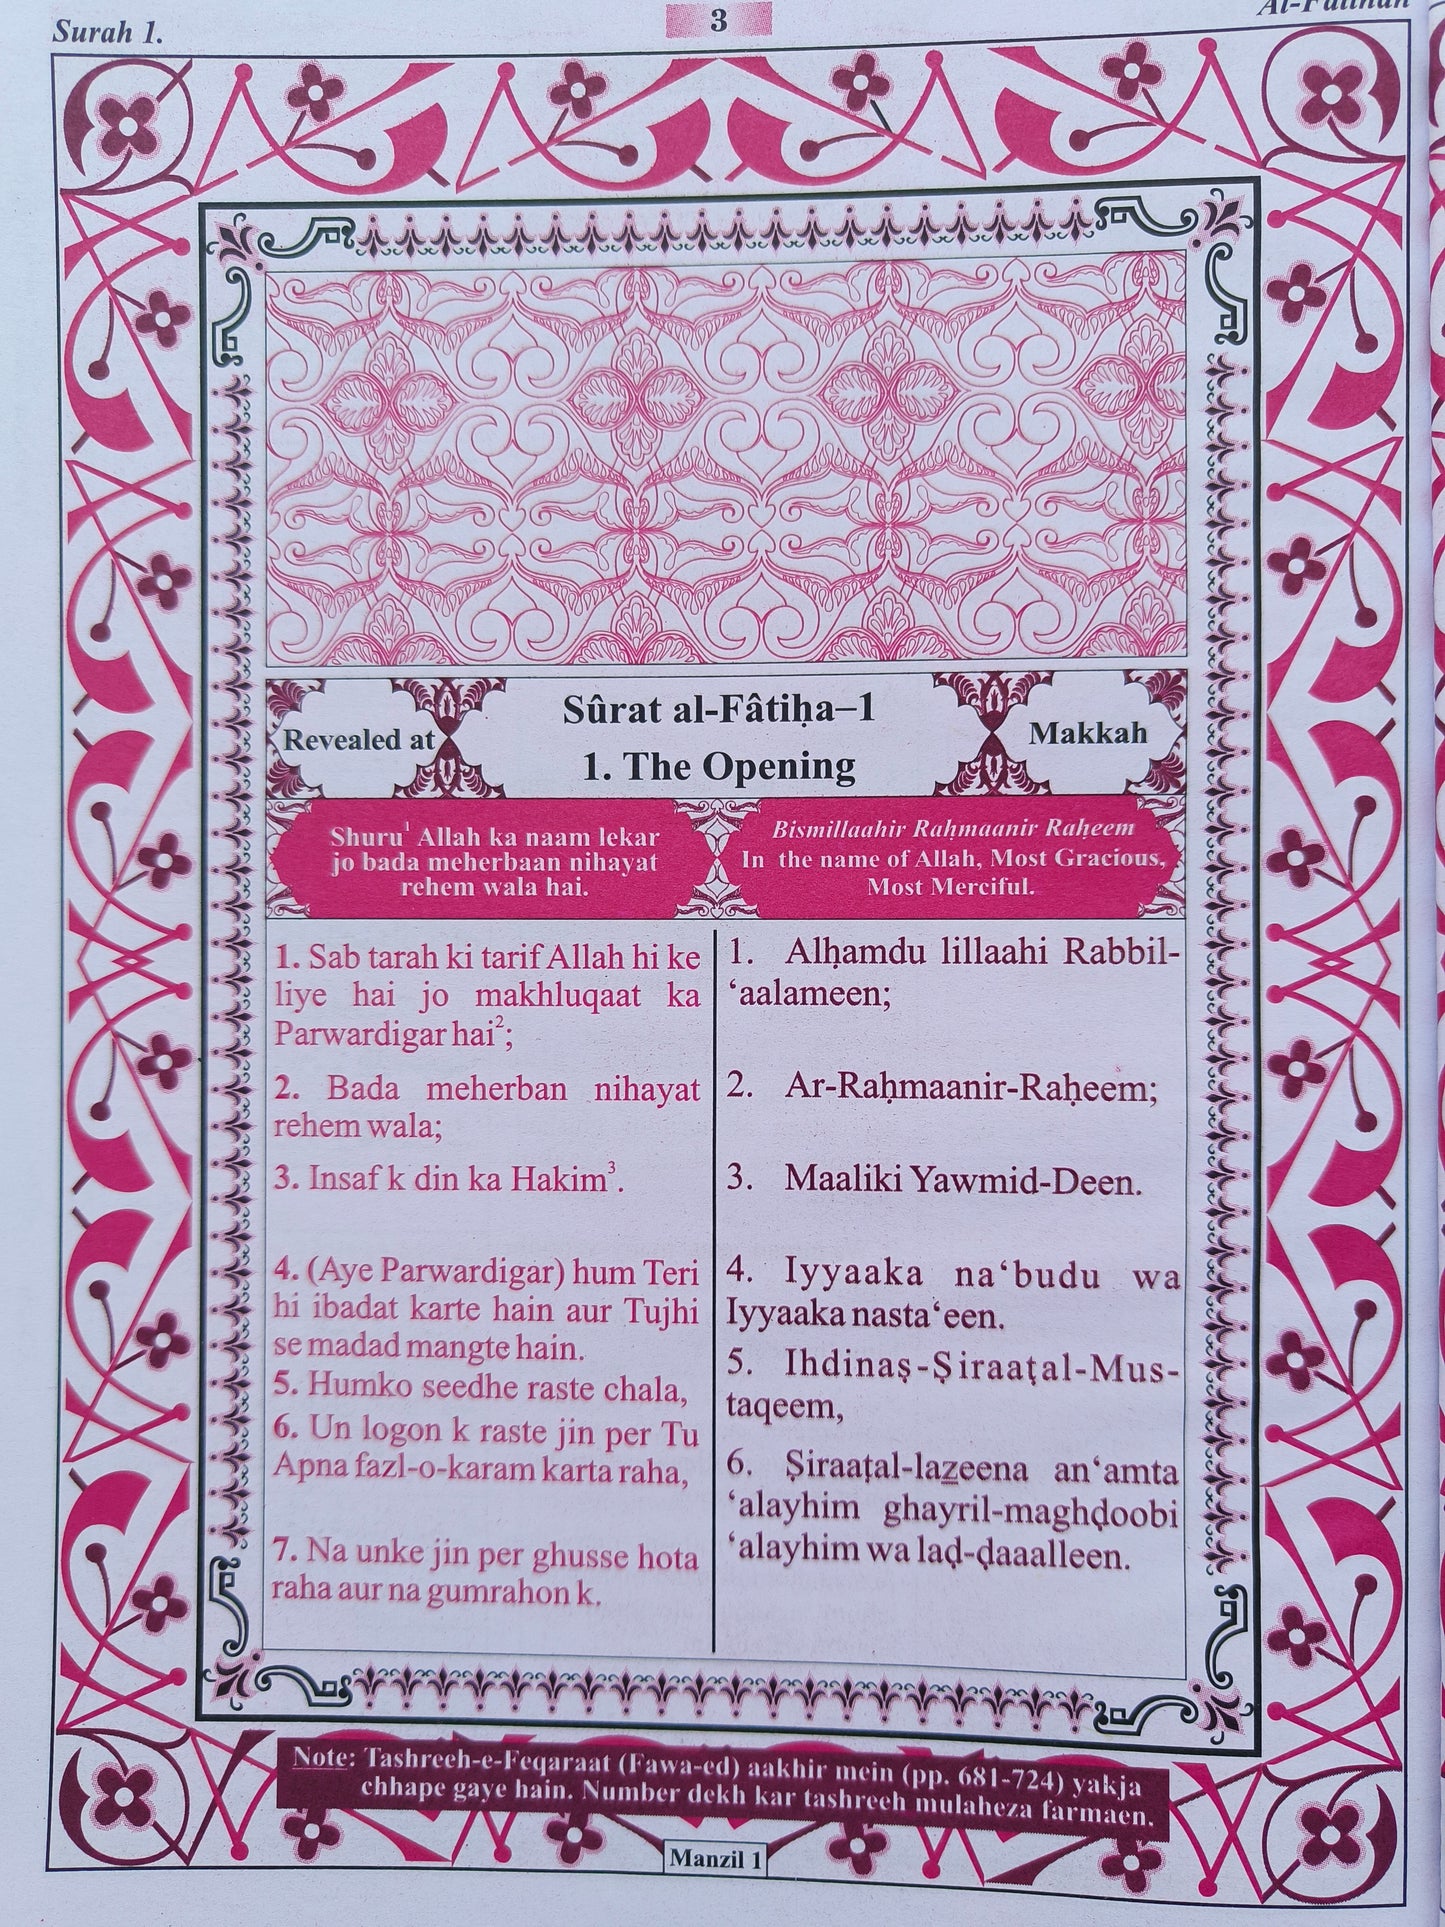 Surah 1.
3
Al-Fatihah
Revealed at
Sûrat al-Fâtiḥa–1
1. The Opening
Makkah
Shuru¹ Allah ka naam lekar
jo bada meherbaan nihayat
rehem wala hai.
Bismillaahir Raḥmaanir Raḥeem
In the name of Allah, Most Gracious,
Most Merciful.
1. Sab tarah ki tarif Allah hi ke
liye hai jo makhluqaat ka
Parwardigar hai²;
2. Bada meherban nihayat
rehem wala;
3. Insaf k din ka Hakim³.
4. (Aye Parwardigar) hum Teri
hi ibadat karte hain aur Tujhi
se madad mangte hain.
5. Humko seedhe raste chala,
6. Un logon k raste jin per Tu
Apna fazl-o-karam karta raha,
7. Na unke jin per ghusse hota
raha aur na gumrahon k.
1. Alḥamdu lillaahi Rabbil-
‘aalameen;
2. Ar-Raḥmaanir-Raḥeem;
3. Maaliki Yawmid-Deen.
4. Iyyaaka na‘budu wa
Iyyaaka nasta‘een.
5. Ihdinaṣ-Ṣiraaṭal-Mus-
taqeem,
6. Ṣiraaṭal-laz̲eena an‘amta
‘alayhim ghayril-maghḍoobi
‘alayhim wa laḍ-ḍaaalleen.
Note: Tashreeh-e-Feqaraat (Fawa-ed) aakhir mein (pp. 681-724) yakja
chhape gaye hain. Number dekh kar tashreeh mulaheza farmaen.
Manzil 1